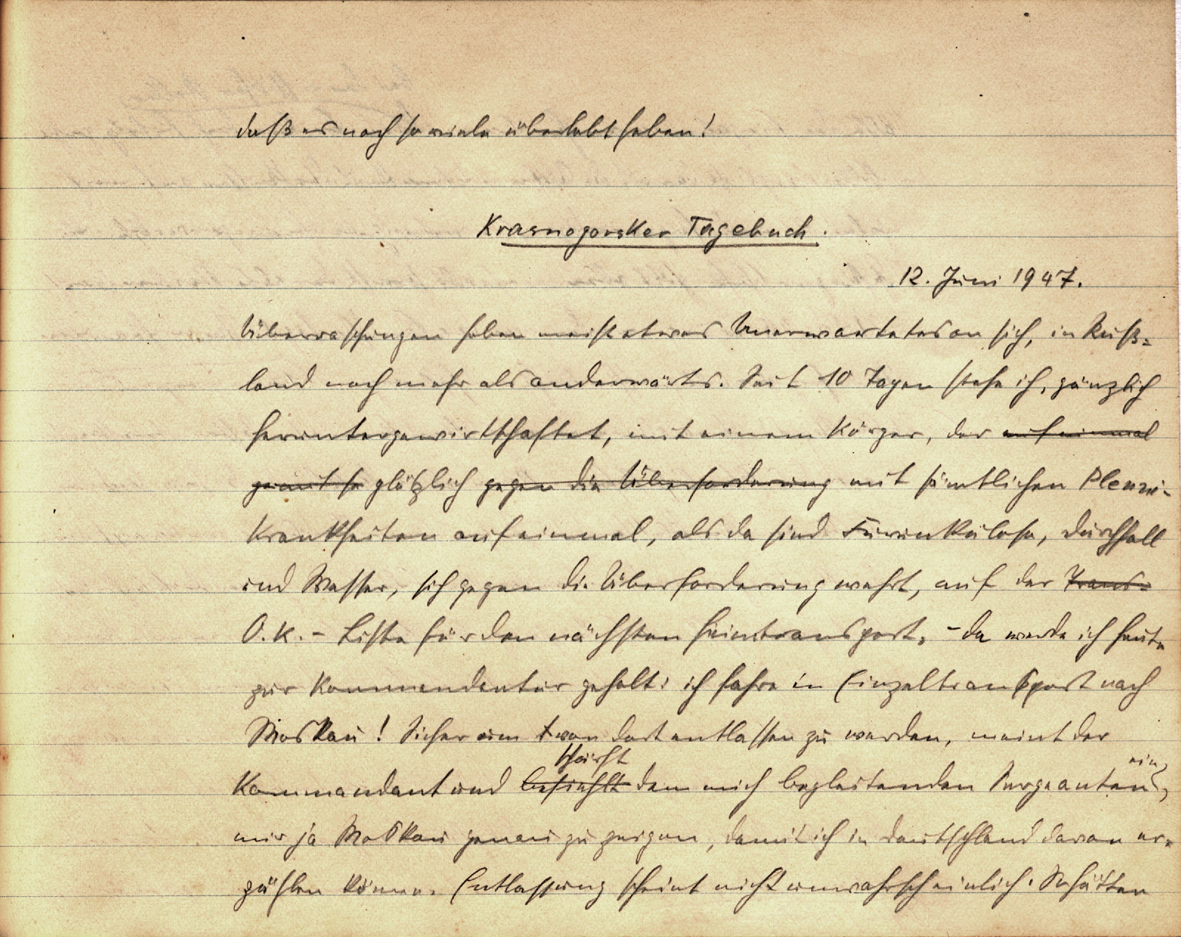 daß es noch so viele überlebt haben!
Krasnogorsker Tagebuch.
12. Juni 1947.
Überraschungen haben meist etwas Unerwartetes an sich, in Ruß-
land noch mehr als anderwärts. Seit 10 Tagen stehe ich, gänzlich
heruntergewirtschaftet, mit einem Körper, der auf einmal
plötzlich gegen die Überforderung mit sämtlichen Plenni-
Krankheiten auf einmal, als da sind Furunkulose, Durchfall
und Wasser, sich gegen die Überforderung wehrt, auf der Trans-
O.K.- Liste für den nächsten Heimtransport, - da werde ich heute
zur Kommandantur geholt: ich fahre in Einzeltransport nach
Moskau! Sicher um von dort entlassen zu werden, meint der
schärft
Kommandant und befiehlt dem mich begleitenden Sergeanten ein,
mir ja Moskau genau zu zeigen, damit ich in Deutschland davon er-
zählen könne. Entlassung scheint nicht unwahrscheinlich. So hätten